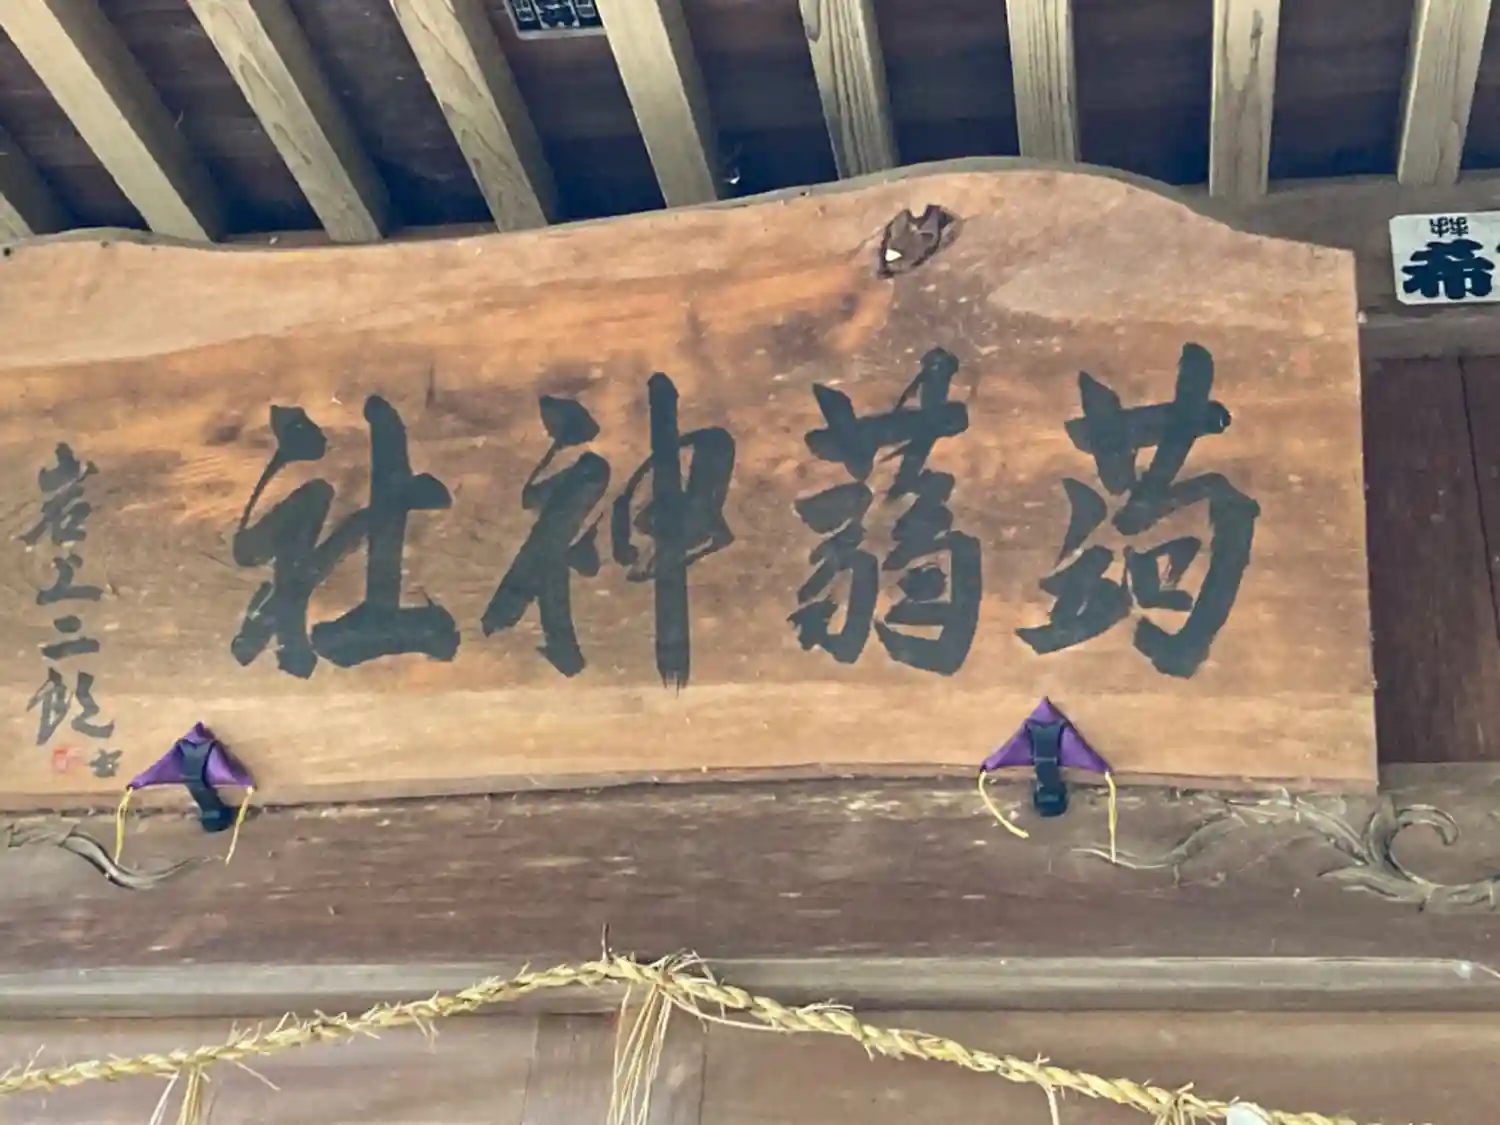 蒟蒻神社
岩上二郎書
希